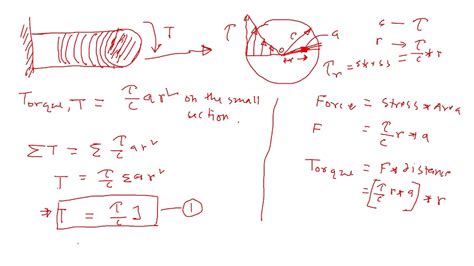 T
τ
c
a
r
c — τ
r → τ/c * r
τr = stress = τ/c * r
Torque, T = τ/c ar² on the small
section.
ΣT = Σ τ/c ar²
T = τ/c Σar²
⇒ T = τ/c J ①
Force = Stress * Area
F = τ/c r * a
Torque = F * distance
= [τ/c r * a] * r